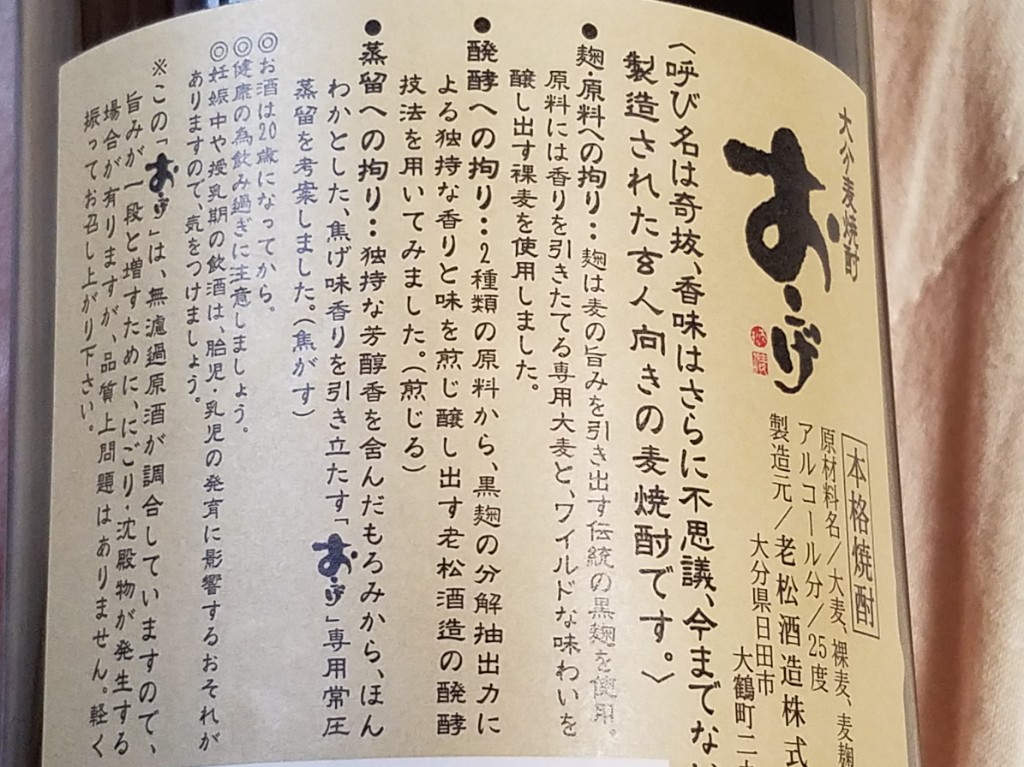 大分麦焼酎
お・こげ
本格焼酎
原材料名/大麦、裸麦、麦麹
アルコール分/25度
製造元/老松酒造株式
大分県日田市
大鶴町二
〈呼び名は奇抜、香味はさらに不思議、今までな
製造された玄人向きの麦焼酎です。〉
●麹・原料への拘り‥麹は麦の旨みを引き出す伝統の黒麹を使用。
原料には香りを引きたてる専用大麦と、ワイルドな味わいを
醸し出す裸麦を使用しました。
●醗酵への拘り‥2種類の原料から、黒麹の分解抽出力に
よる独特な香りと味を煎じ醸し出す老松酒造の醗酵
技法を用いてみました。(煎じる)
●蒸留への拘り‥独特な芳醇香を含んだもろみから、ほん
わかとした、焦げ味香りを引き立たす「お・こげ」専用常圧
蒸留を考案しました。(焦がす)
◎お酒は20歳になってから。
◎健康の為飲み過ぎに注意しましょう。
◎妊娠中や授乳期の飲酒は、胎児・乳児の発育に影響するおそれが
ありますので、気をつけましょう。
※この「お・こげ」は、無濾過原酒が調合していますので、
旨みが一段と増すために、にごり・沈殿物が発生する
場合が有りますが、品質上問題はありません。軽く
振ってお召し上がり下さい。